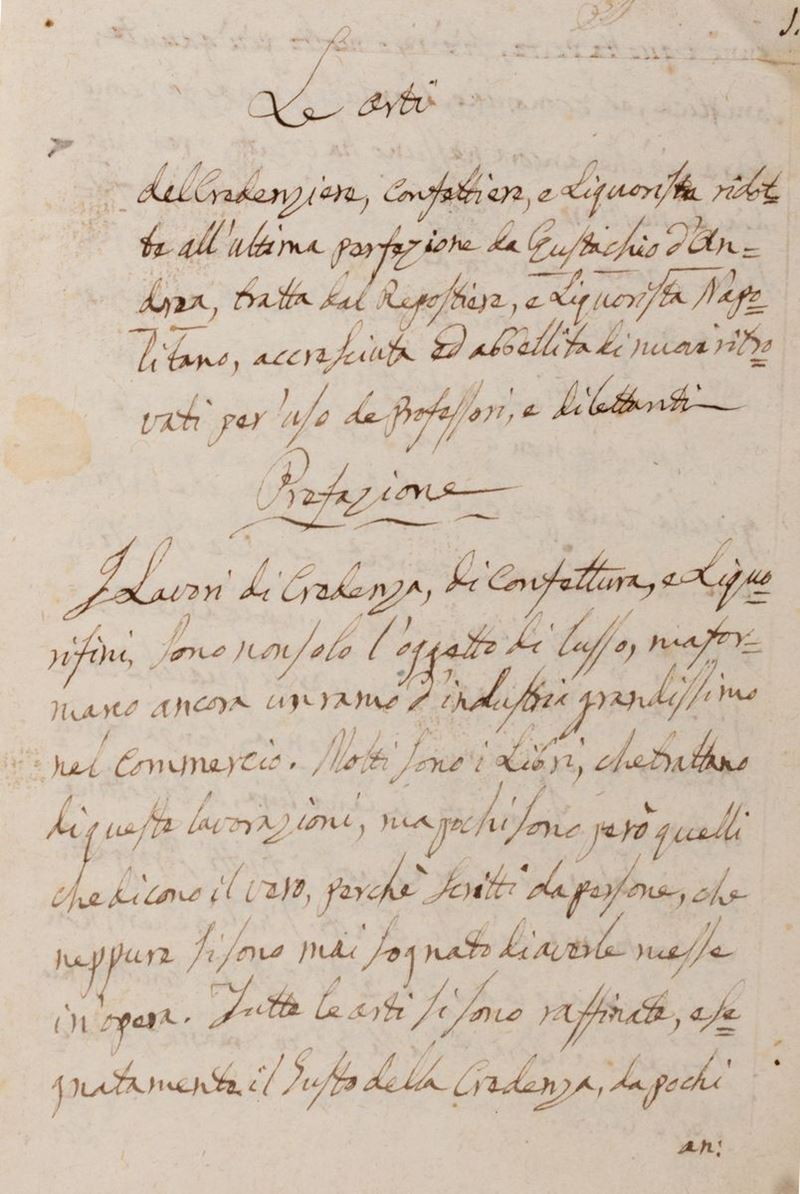 1.
Le arti
del Credenziere, Confettiere, e Liquorista ridot=
te all'ultima perfezione da Eustachio d'An=
drea, tratta dal Repostiere, e Liquorista Napo=
litano, accresciuta ed abbellita di nuovi ritro=
vati per l'uso de Professori, e dilettanti
Prefazione
I Lavori di Credenza, di Confettura, e Liquo=
rifini, sono non solo l'oggetto di lusso, ma for=
mano ancora un ramo d'industria grandissimo
nel commercio. Molti sono i Libri, che trattano
di queste lavorazioni, ma pochi sono però quelli
che dicono il vero, perchè scritti da persone, che
neppure si sono mai sognato di averle messe
in'opera. Tutte le arti si sono raffinate, e se=
gnatamente il Gusto della Credenza, da pochi
an: